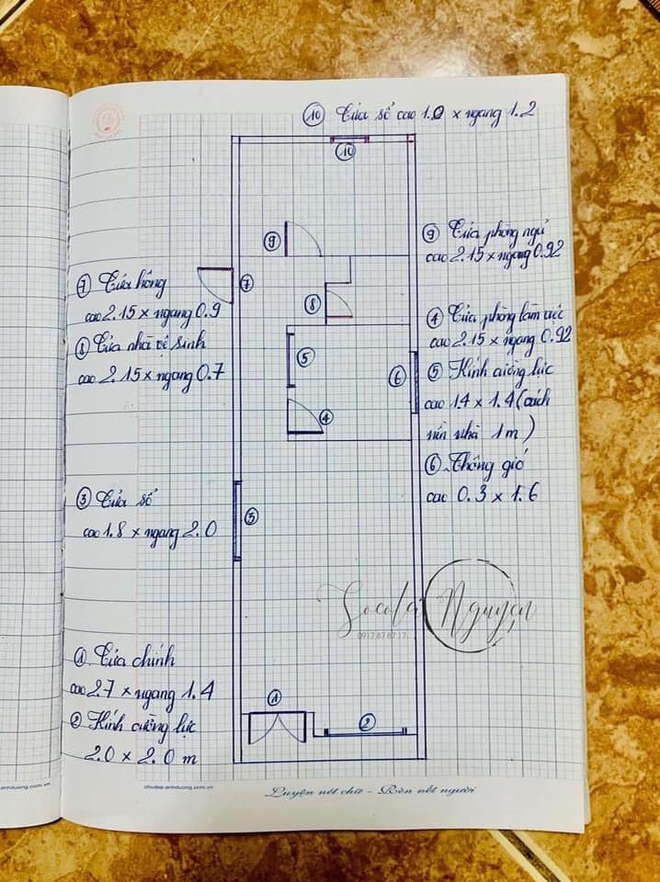 ⑩ Cửa sổ cao 1.0 x ngang 1.2
⑩
⑨
⑨ Cửa phòng ngủ
cao 2.15 x ngang 0.92
⑦
⑦ Cửa hông
cao 2.15 x ngang 0.9
⑧
⑧ Cửa nhà vệ sinh
cao 2.15 x ngang 0.7
④ Cửa phòng làm việc
cao 2.15 x ngang 0.92
⑤
⑥
⑤ Kính cường lực
cao 1.4 x 1.4 (cách
nền nhà 1m)
④
⑥ Thông gió
cao 0.3 x 1.6
③ Cửa sổ
cao 1.8 x ngang 2.0
③
Socola Nguyễn
① Cửa chính
cao 2.7 x ngang 1.4
② Kính cường lực
2.0 x 2.0 m
①
②
anhduong.com.vn
chudep.anhduong.com.vn
Luyện nét chữ - Rèn nết người